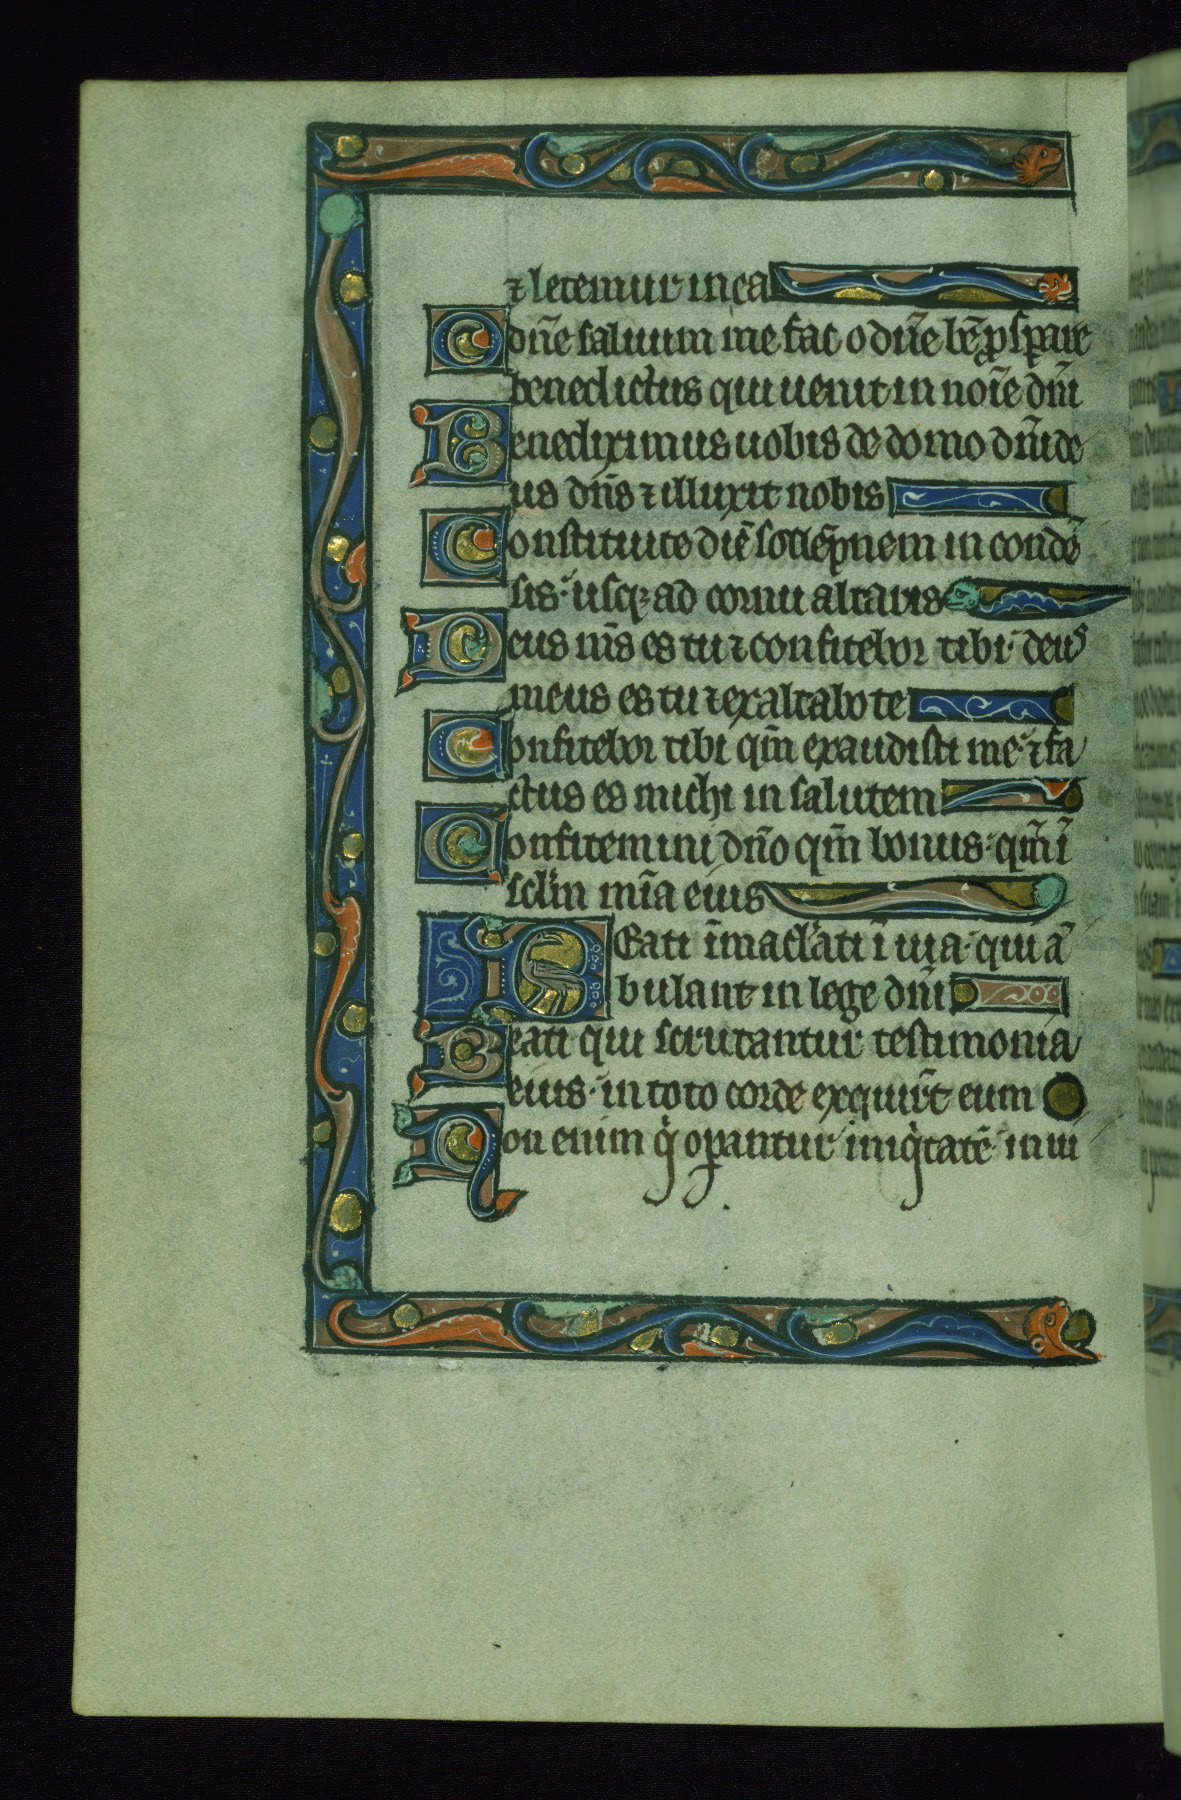 ⁊ letemur in ea
O dn̄e saluum me fac o dn̄e bn̄ ꝓsꝑare
benedictus qui uenit in noīe dn̄i
Benediximus uobis de domo dn̄i de
us dn̄s ⁊ illuxit nobis
Constituite diē sollēpnem in condē
sis · usqꝫ ad cornu altaris
Deus m̄s es tu ⁊ confitebor tibi · deus
meus es tu ⁊ exaltabo te
Confitebor tibi qm̄ exaudisti me · ⁊ fa
ctus es michi in salutem
Confitemini dn̄o qm̄ bonus · qm̄ ī
sclm̄ mīa eius
BEati īmaclati ī uia · qui ā
bulant in lege dn̄i
Beati qui scrutantur testimonia
eius · in toto corde exquirt̄ eum
Non enim q̇ oꝑantur iniq̇tatē · in ui